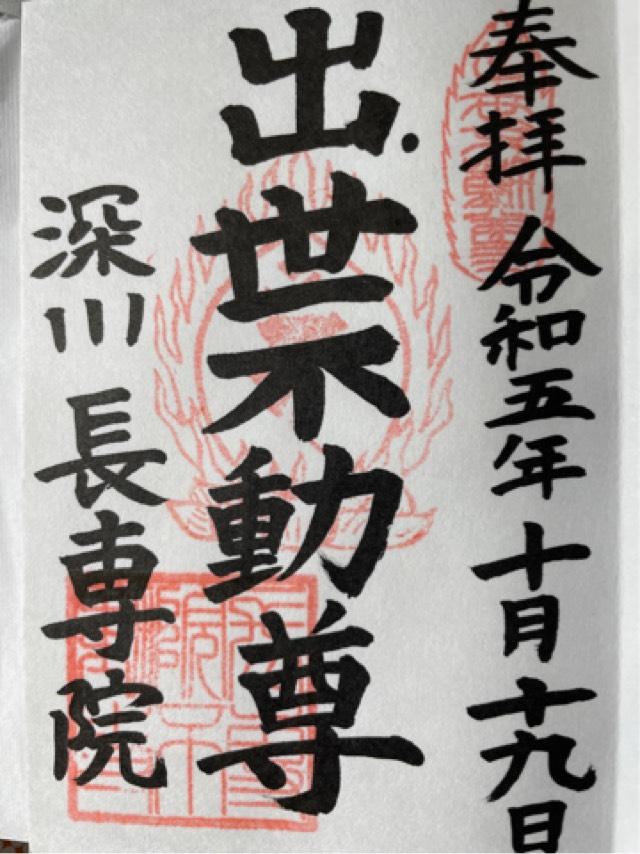 奉拝 令和五年十月十九日
出世不動尊
深川 長専院